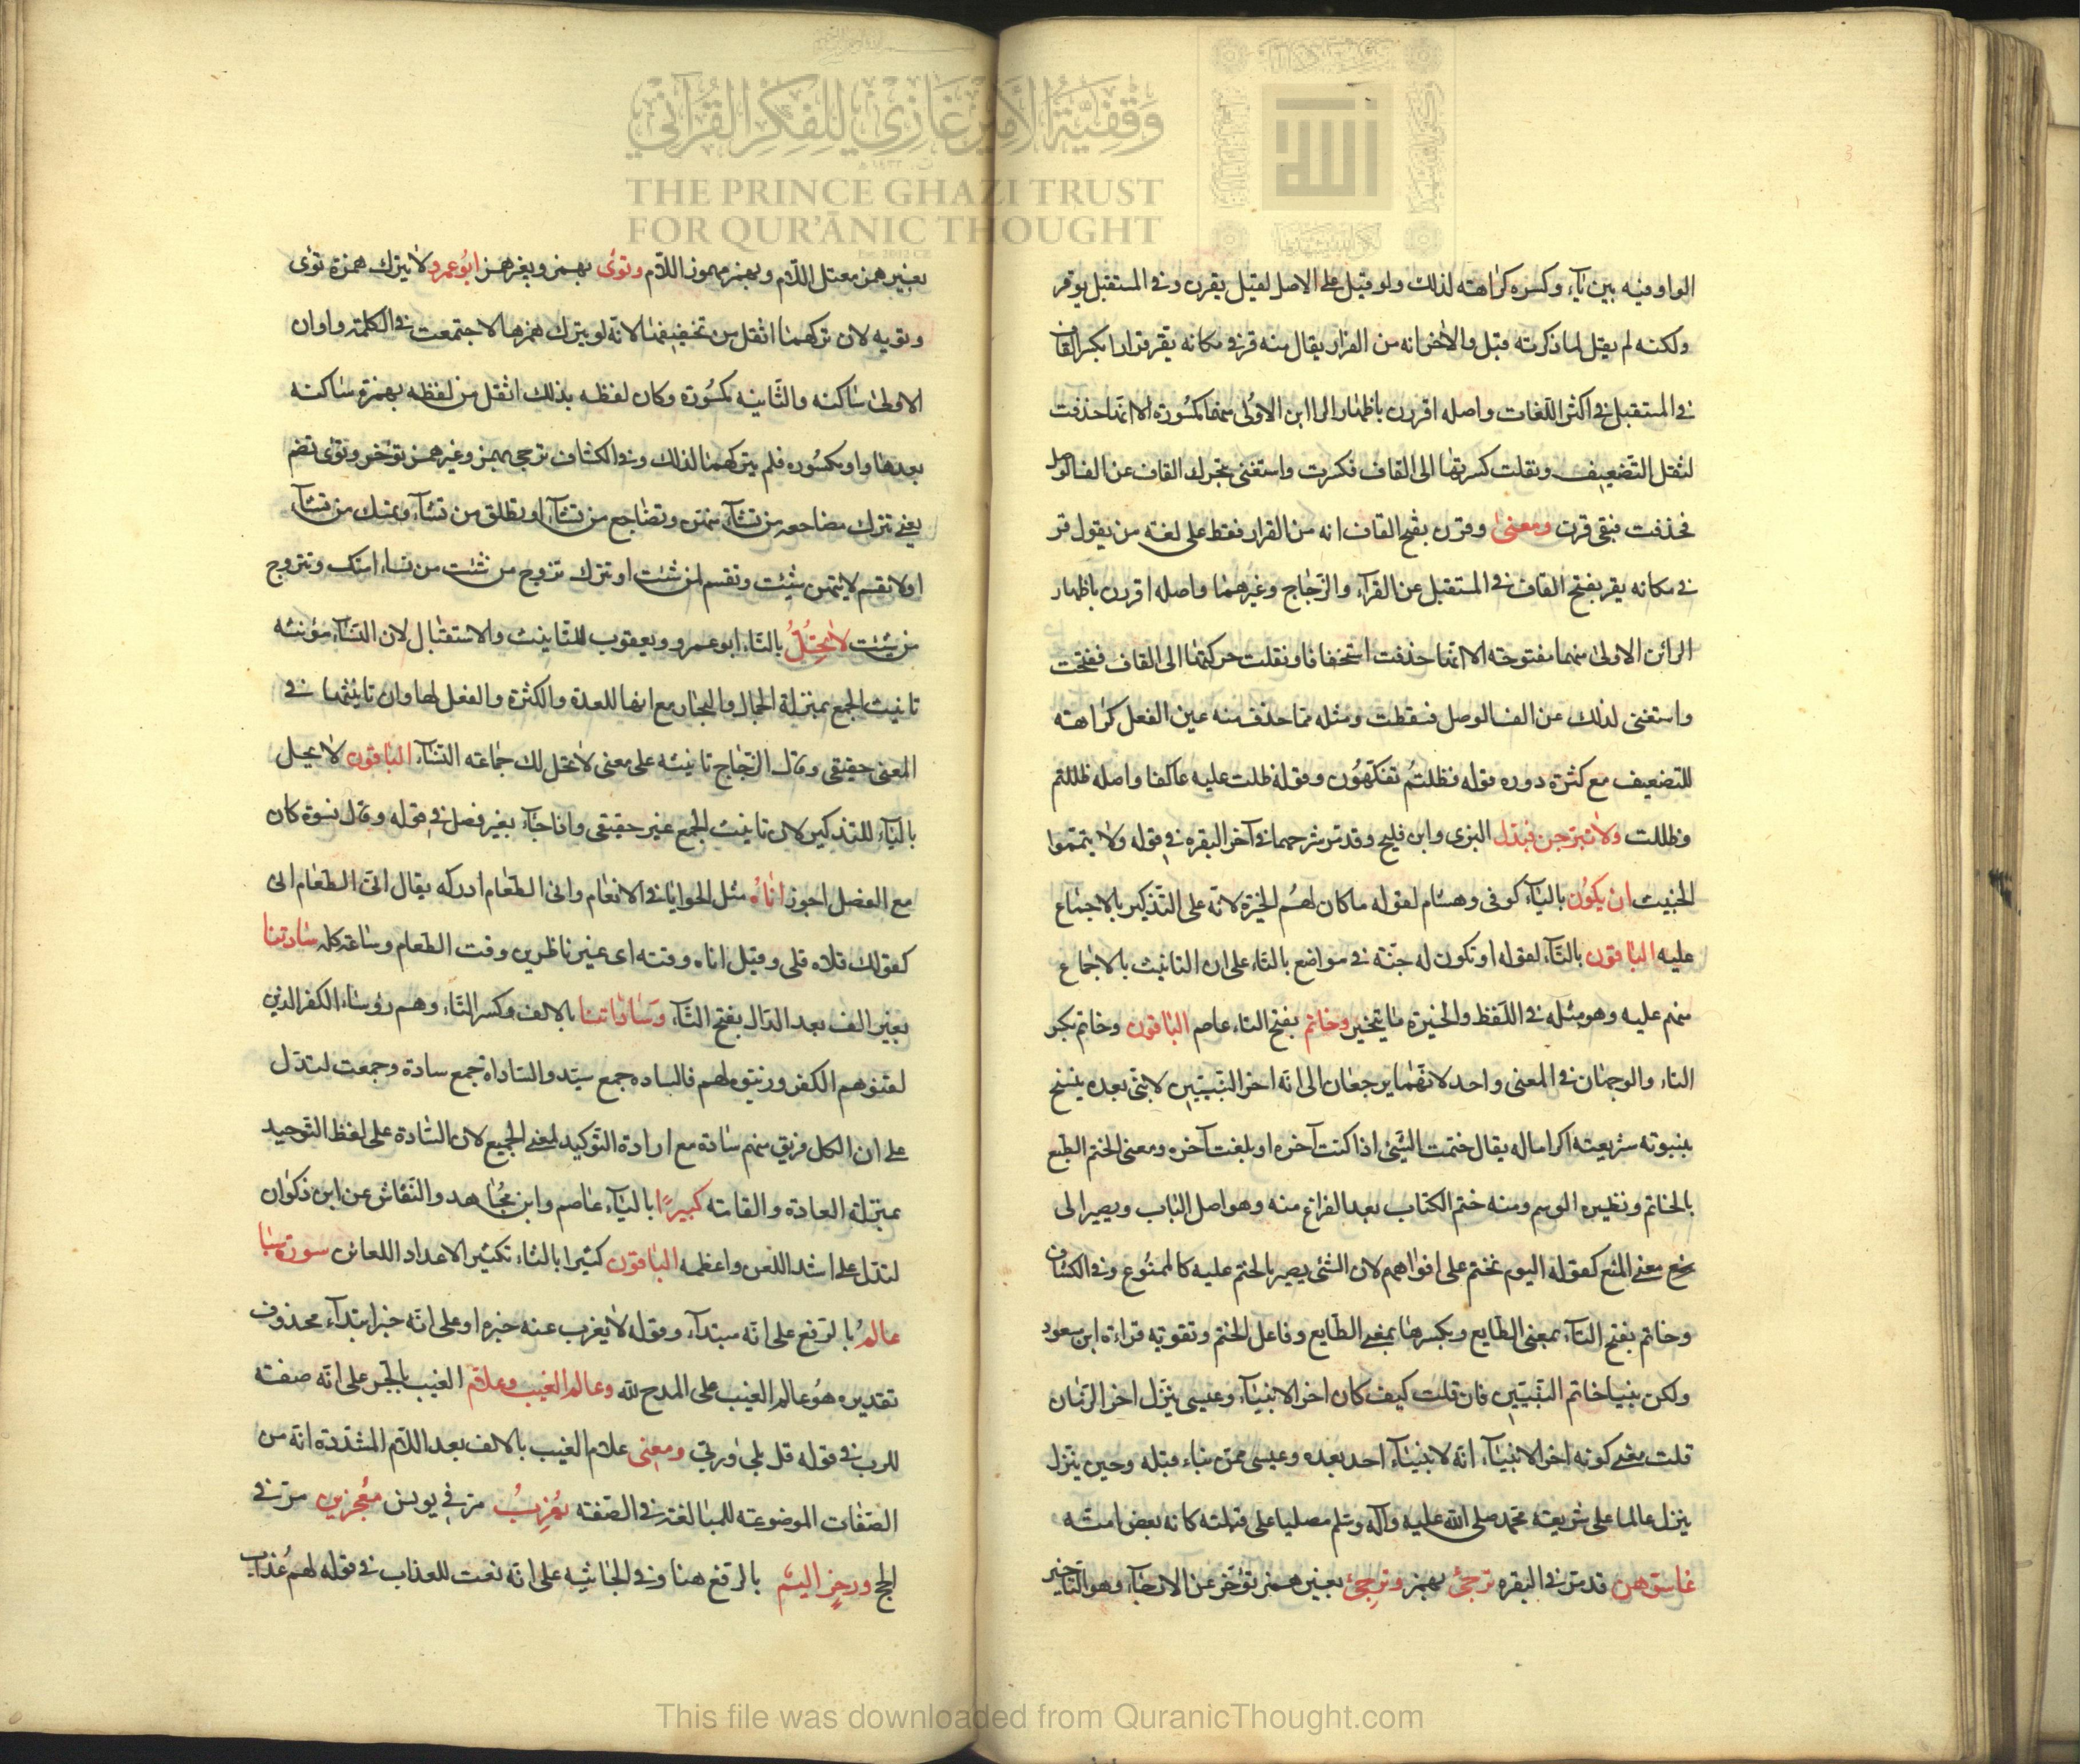 وقفية الأمير غازي للفكر القرآني
THE PRINCE GHAZI TRUST
FOR QUR'ĀNIC THOUGHT
Est. 2012 CE
الواو فيه بين ياء وكسره كراهته لذلك ولو قيل على الاصل لقيل يقرن وفي المستقبل يوقر
ولكنه لم يقل لما ذكرته قبل والاخر انه من القرار يقال منه قر في مكانه يقر قرارا بكسر القاف
في المستقبل في اكثر اللغات واصله اقررن باظهار الراين الاولى منهما مكسورة الا انها حذفت
لثقل التضعيف ونقلت كسرتها الى القاف فكسرت واستغنى بتحرك القاف عن الف الوصل
فحذفت فبقى قرن ومعنى وقرن بفتح القاف انه من القرار فقط على لغة من يقول قر
في مكانه يقر بفتح القاف في المستقبل عن الفرآء والزجاج وغيرهما واصله اقررن باظهار
الرائن الاولى منهما مفتوحته الا انها حذفت استخفافا ونقلت حركتها الى القاف ففتحت
واستغنى لذلك عن الف الوصل فسقطت ومثله مما حذف منه عين الفعل كراهته
للتضعيف مع كثرة دوره قوله فظلتم تفكهون وقوله ظلت عليه عاكفا واصله ظللتم
وظللت ولا تبرجن فبدل البزى وابن فليح وقد مر شرحهما في آخر البقره في قوله ولا يتمموا
الخبيث ان يكون بالياء كوفى وهشام لقوله ما كان لهم الخيرة لانه على التذكير بالاجماع
عليه الباقون بالتآء لقوله او تكون له جنة في مواضع بالتاء على ان التانيث بالاجماع
منهم عليه وهو مثله في اللفظ والخيرة ما يتخير وخاتم بفتح التاء عاصم الباقون وخاتم بكسر
التاء والوجهان في المعنى واحد لانهما يرجعان الى انه اخر النبيين لا نبى بعده ينسخ
بنبوته شريعته اكراما له يقال ختمت الشئ اذا كنت آخره او بلغت آخره ومعنى الختم الطبع
بالخاتم ونظيره الوسم ومنه ختم الكتاب بعد الفراغ منه وهو اصل الباب ويصير الى
معنى المنع كقوله اليوم نختم على افواههم لان الشئ يصير بالختم عليه كالممنوع وفي الكشاف
وخاتم بفتح التآء بمعنى الطابع وبكسرها بمعنى الطابع وفاعل الختم وتقويه قراءة ابن مسعود
ولكن نبيا خاتم النبيين فان قلت كيف كان اخر الانبيآء وعيسى ينزل اخر الزمان
قلت معنى كونه اخر الانبيآء انه لا ينبأ احد بعده وعيسى ممن نباء قبله وحين ينزل
ينزل عالما على شريعة محمد صلى الله عليه وآله وسلم مصليا على قبلته كانه بعض امته
قد مر في البقره ترجئ بهمز وترجى بغير همز تؤخر عن الارجاء وهو التاخير
بغير همز معتل اللام وبهمز مهموز اللام وتوى بهمز وبغير همز ابو عمرو لا يترك همزة توى
وتويه لان تركهما اثقل من تخفيفها لانه لو يترك همزها لاجتمعت في الكلمة واوان
الاولى ساكنه والثانيه مكسورة وكان لفظه بذلك اثقل من لفظه بهمزة ساكنه
بعدها واو مكسوره فلم يتركهما لذلك وفي الكشاف ترجى بهمز وغير همز تؤخر وتؤى تضم
يعنى تترك مضاجعه من تشآء منهن وتضاجع من تشآء او تطلق من تشآء وتمسك من تشآء
او لا تقسم لايتهن شئت وتقسم لمن شئت او تترك تزوج من شئت من نساء امتك وتتزوج
من شئت لا تحل بالتاء ابو عمرو ويعقوب للتانيث والاستقبال لان النسآء مؤنثه
تانيث الجمع بمنزلة الجمال والجار مع انها للعدة والكثرة والفعل لها وان تانيثها في
المعنى حقيقى وقال الزجاج تانيثه على معنى لا تحل لك جماعته النسآء الباقون لا يحل
باليآء للتذكير لان تانيث الجمع غير حقيقى واذا جآء بغير فصل في قوله وقال نسوة كان
مع الفصل اجوز اناه مثل الحوايا في الانعام وانى الطعام ادركه يقال انى الطعام انى
كقولك قلاه قلى وقيل اناه وقته اى غير ناظرين وقت الطعام وساعة اكله سادتنا
بغير الف بعد الدال بفتح التآء وساداتنا بالالف وكسر التاء وهم رؤساء الكفر الذين
لقنوهم الكفر وزينوه لهم فالساده جمع سيد والسادات جمع سادة وجمعت لتدل
على ان لكل فريق منهم سادة مع ارادة التوكيد لمعنى الجميع لان السادة على لفظ التوحيد
بمنزلة العادة والقامته كبيرا بالبآء عاصم وابن مجاهد والنقاش عن ابن ذكوان
لتدل على اشد اللعن واعظمه الباقون كثيرا بالثاء تكثير الاعداد اللعائن سورة سبا
عالم بالرفع على انه مبتدآء وقوله لا يغرب عنه خبره او على انه خبر ابتدآء محذوف
تقديره هو عالم الغيب على المدح لله وعالم الغيب وعلام الغيب بالجر على انه صفته
للرب في قوله قل بلى وربى ومعنى علام الغيب بالالف بعد اللام المشددة انه من
الصفات الموضوعته للمبالغة في الصفته يعزب مر في يونس معجزين مر في
الحج ورجز اليم بالرفع هنا وفي الجاثيه على انه نعت للعذاب في قوله لهم عذاب
This file was downloaded from QuranicThought.com